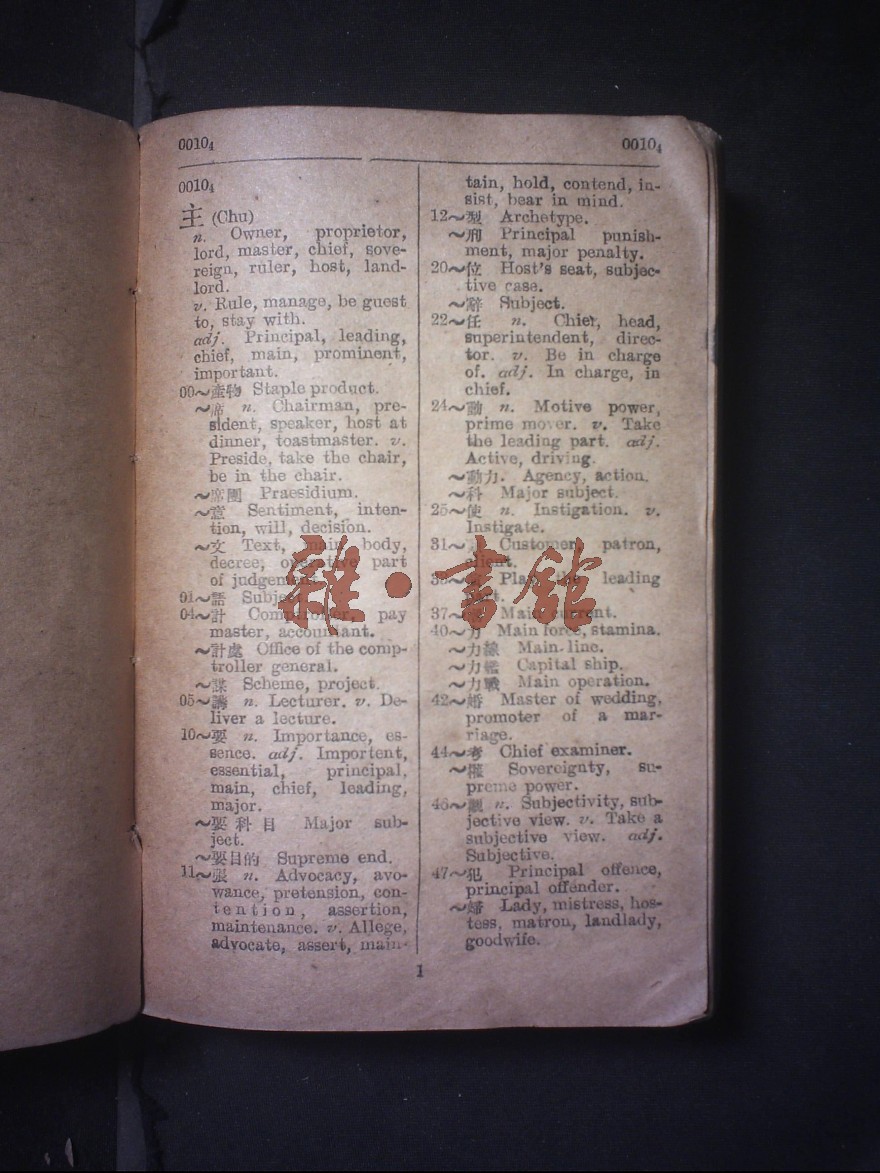 0010₄ 0010₄
0010₄
主 (Chu)
n. Owner, proprietor,
lord, master, chief, sove-
reign, ruler, host, land-
lord.
v. Rule, manage, be guest
to, stay with.
adj. Principal, leading,
chief, main, prominent,
important.
00～產物 Staple product.
～席 n. Chairman, pre-
sident, speaker, host at
dinner, toastmaster. v.
Preside, take the chair,
be in the chair.
～席團 Praesidium.
～意 Sentiment, inten-
tion, will, decision.
～文 Text, main body,
decree, operative part
of judgement.
01～語 Subject.
04～計 Comptroller, pay
master, accountant.
～計處 Office of the comp-
troller general.
～謀 Scheme, project.
05～講 n. Lecturer. v. De-
liver a lecture.
10～要 n. Importance, es-
sence. adj. Important,
essential, principal,
main, chief, leading,
major.
～要科目 Major sub-
ject.
～要目的 Supreme end.
11～張 n. Advocacy, avo-
wance, pretension, con-
tention, assertion,
maintenance. v. Allege,
advocate, assert, main-
tain, hold, contend, in-
sist, bear in mind.
12～型 Archetype.
～刑 Principal punish-
ment, major penalty.
20～位 Host's seat, subjec-
tive case.
～辭 Subject.
22～任 n. Chief, head,
superintendent, direc-
tor. v. Be in charge
of. adj. In charge, in
chief.
24～動 n. Motive power,
prime mover. v. Take
the leading part. adj.
Active, driving.
～動力. Agency, action.
～科 Major subject.
25～使 n. Instigation. v.
Instigate.
31～ Customer, patron,
client.
Play the leading
37～ Main current.
40～力 Main force, stamina.
～力線 Main-line.
～力艦 Capital ship.
～力戰 Main operation.
42～婚 Master of wedding,
promoter of a mar-
riage.
44～考 Chief examiner.
～權 Sovereignty, su-
preme power.
46～觀 n. Subjectivity, sub-
jective view. v. Take a
subjective view. adj.
Subjective.
47～犯 Principal offence,
principal offender.
～婦 Lady, mistress, hos-
tess, matron, landlady,
goodwife.
1
雜·書館